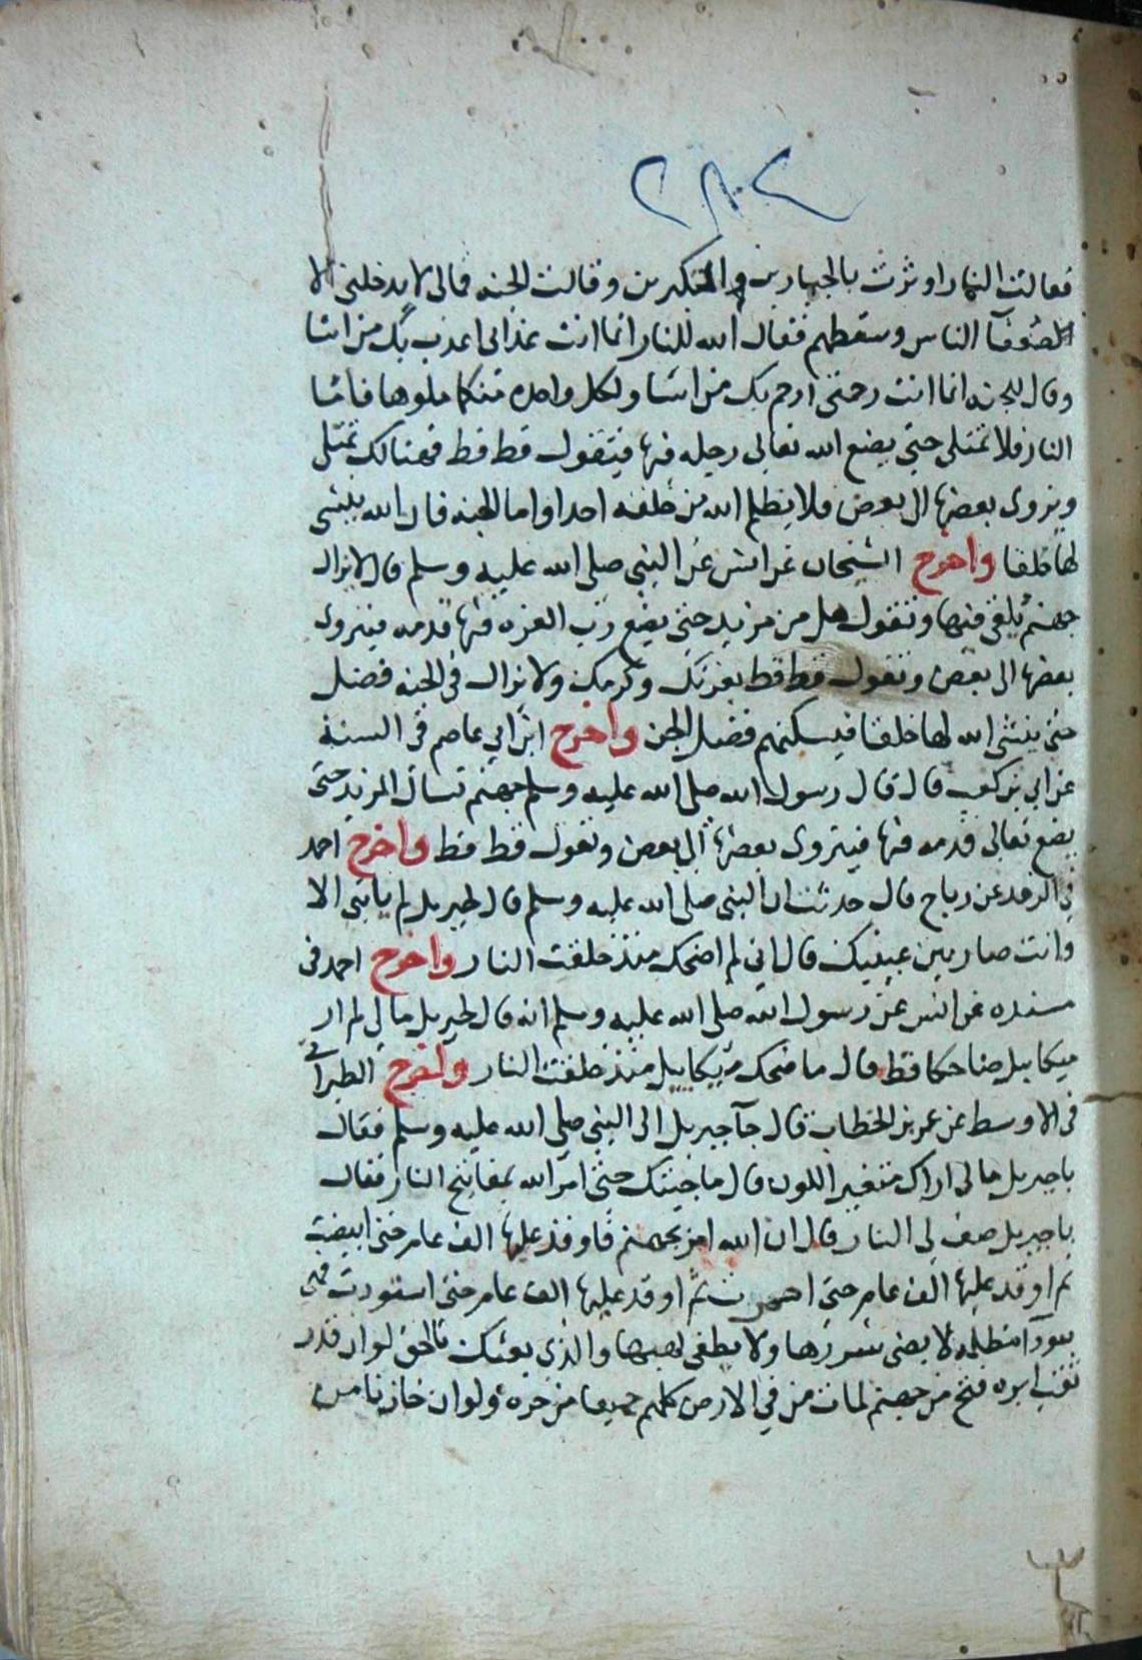 ٢٨٢
فقالت النار اوثرت بالجبارين والمتكبرين وقالت الجنه فمالى لا يدخلنى الا
ضعفآ الناس وسقطهم فقال الله للنار انما انت عذابى اعذب بك من اشا
وقال للجنه انما انت رحمتى ارحم بك من اشا ولكل واحده منكما ملوها فاما
النار فلا تمتلى حتى يضع الله تعالى رجله فيها فتقول قط قط فهنالك تمتلى
ويزوى بعضها الى بعض فلا يظلم الله من خلقه احدا واما الجنه فان الله ينشى
لها خلقا واخرج الشيخان عن انس عن النبي صلى الله عليه وسلم قال لا يزال
جهنم يلقى فيها وتقول هل من مزيد حتى يضع رب العزه فيها قدمه فينزوى
بعضها الى بعض وتقول قط قط بعزتك وكرمك ولا يزال فى الجنه فضل
حتى ينشى الله لها خلقا فيسكنهم فضل الجنه واخرج ابن ابي عاصم فى السنة
عن ابي بن كعب قال قال رسول الله صلى الله عليه وسلم جهنم تسأل المزيد حتى
يضع تعالى قدمه فيها فينزوى بعضها الى بعض وتقول قط قط واخرج احمد
في الزهد عن رباح قال حدثت ان النبى صلى الله عليه وسلم قال لجبريل لم ياتنى الا
وانت صار بين عينيك قال اني لم اضحك منذ خلقت النار واخرج احمد فى
مسنده عن انس عن رسول الله صلى الله عليه وسلم انه قال لجبريل ما لي لم ار
ميكايل ضاحكا قط قال ما ضحك ميكاييل منذ خلقت النار واخرج الطبرانى
فى الاوسط عن عمر بن الخطاب قال جآ جبريل الى النبي صلى الله عليه وسلم فقال
يا جبريل ما لى اراك متغير اللون قال ما جيتك حتى امر الله بمفاتيح النار فقال
يا جبريل صف لي النار قال ان الله امر بجهنم فاوقد عليها الف عام حتى ابيضت
ثم اوقد عليها الف عام حتى احمرت ثم اوقد عليها الف عام حتى اسودت فهى
سودآ مظلمه لا يضى شررها ولا يطفى لهبها والذي بعثك بالحق لو ان قدر
ثقب ابره فتح من جهنم لمات من في الارض كلهم جميعا من حره ولو ان خازنا من